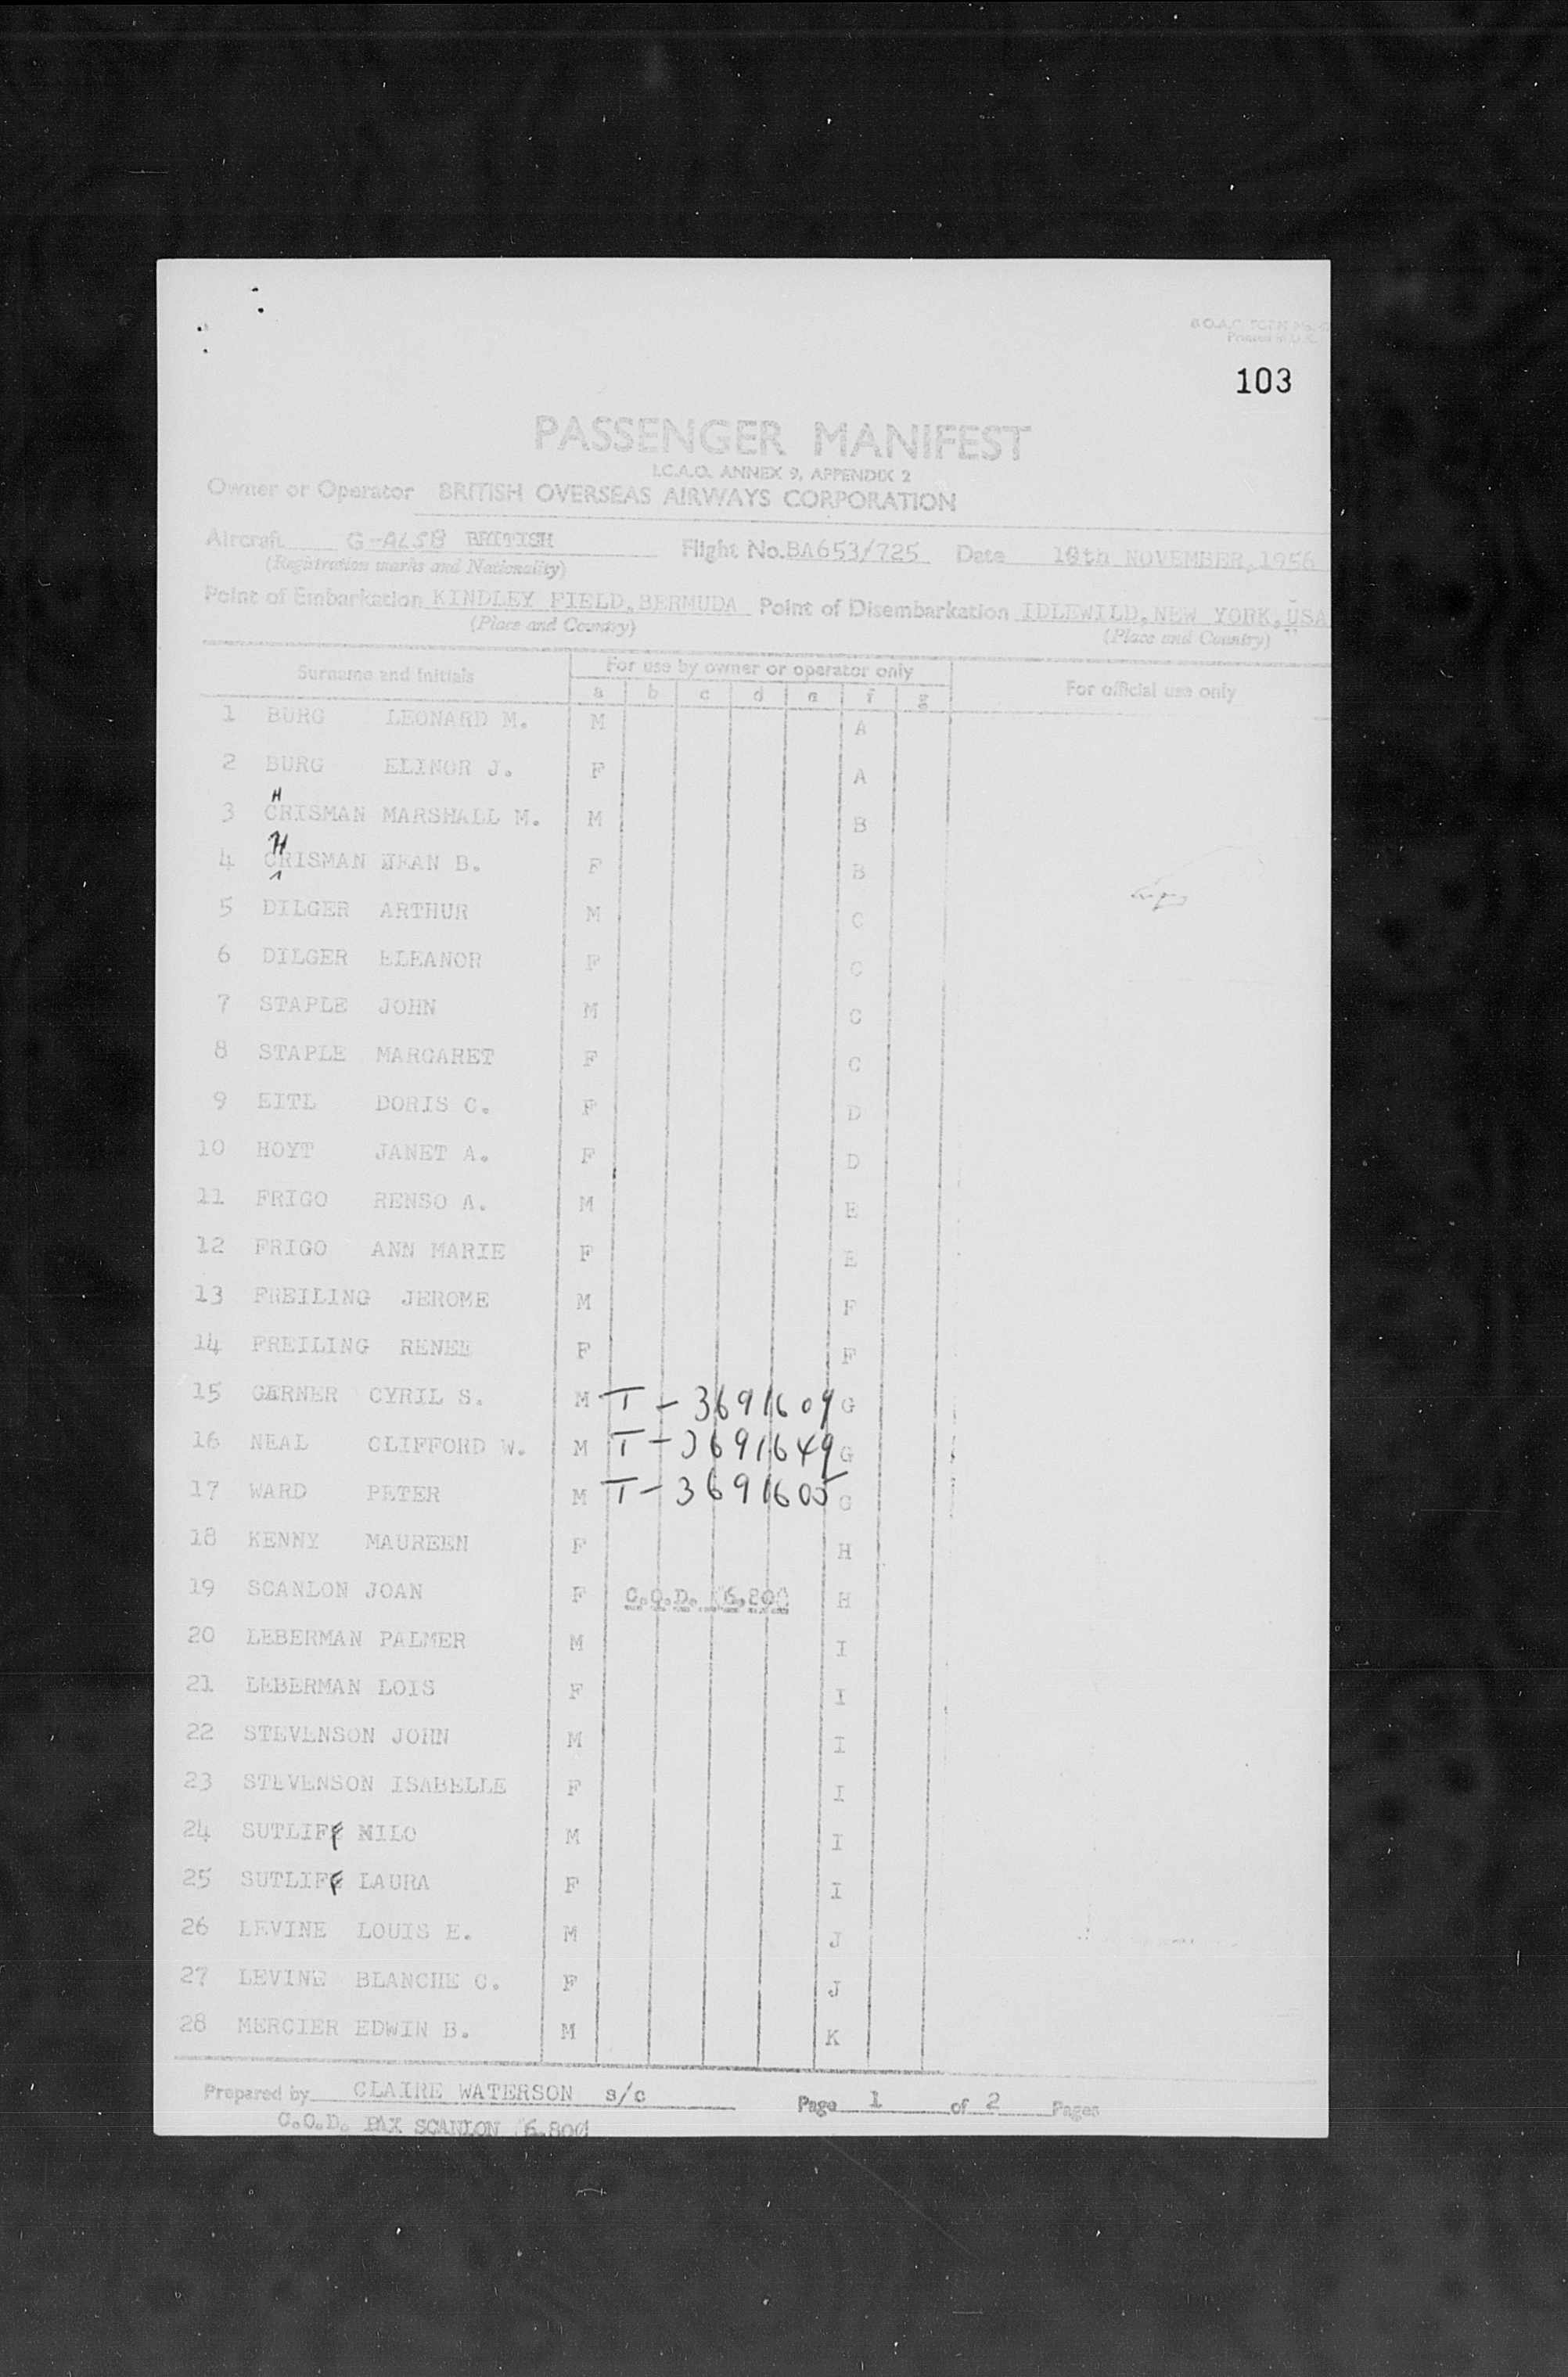 B.O.A.C. FORM No.
Printed in U.K.
103
PASSENGER MANIFEST
I.C.A.O. ANNEX 9, APPENDIX 2
Owner or Operator BRITISH OVERSEAS AIRWAYS CORPORATION
Aircraft G-ALSB BRITISH Flight No. BA653/725 Date 10th NOVEMBER, 1956
(Registration marks and Nationality)
Point of Embarkation KINDLEY FIELD, BERMUDA Point of Disembarkation IDLEWILD, NEW YORK, USA
(Place and Country) (Place and Country)
Surname and Initials For use by owner or operator only For official use only
a b c d e f g
1 BURG LEONARD M. M A
2 BURG ELINOR J. F A
3 CHRISMAN MARSHALL M. M B
4 CHRISMAN JEAN B. F B
5 DILGER ARTHUR M C
6 DILGER ELEANOR F C
7 STAPLE JOHN M C
8 STAPLE MARGARET F C
9 EITL DORIS C. F D
10 HOYT JANET A. F D
11 FRIGO RENSO A. M E
12 FRIGO ANN MARIE F E
13 FREILING JEROME M F
14 FREILING RENEE F F
15 GARNER CYRIL S. M T-3691609 G
16 NEAL CLIFFORD W. M T-3691649 G
17 WARD PETER M T-3691605 G
18 KENNY MAUREEN F H
19 SCANLON JOAN F C.O.D. 6,800 H
20 LEBERMAN PALMER M I
21 LEBERMAN LOIS F I
22 STEVENSON JOHN M I
23 STEVENSON ISABELLE F I
24 SUTLIFF MILO M I
25 SUTLIFF LAURA F I
26 LEVINE LOUIS E. M J
27 LEVINE BLANCHE C. F J
28 MERCIER EDWIN B. M K
Prepared by CLAIRE WATERSON s/c Page 1 of 2 Pages
C.O.D. PAX SCANLON 6,800